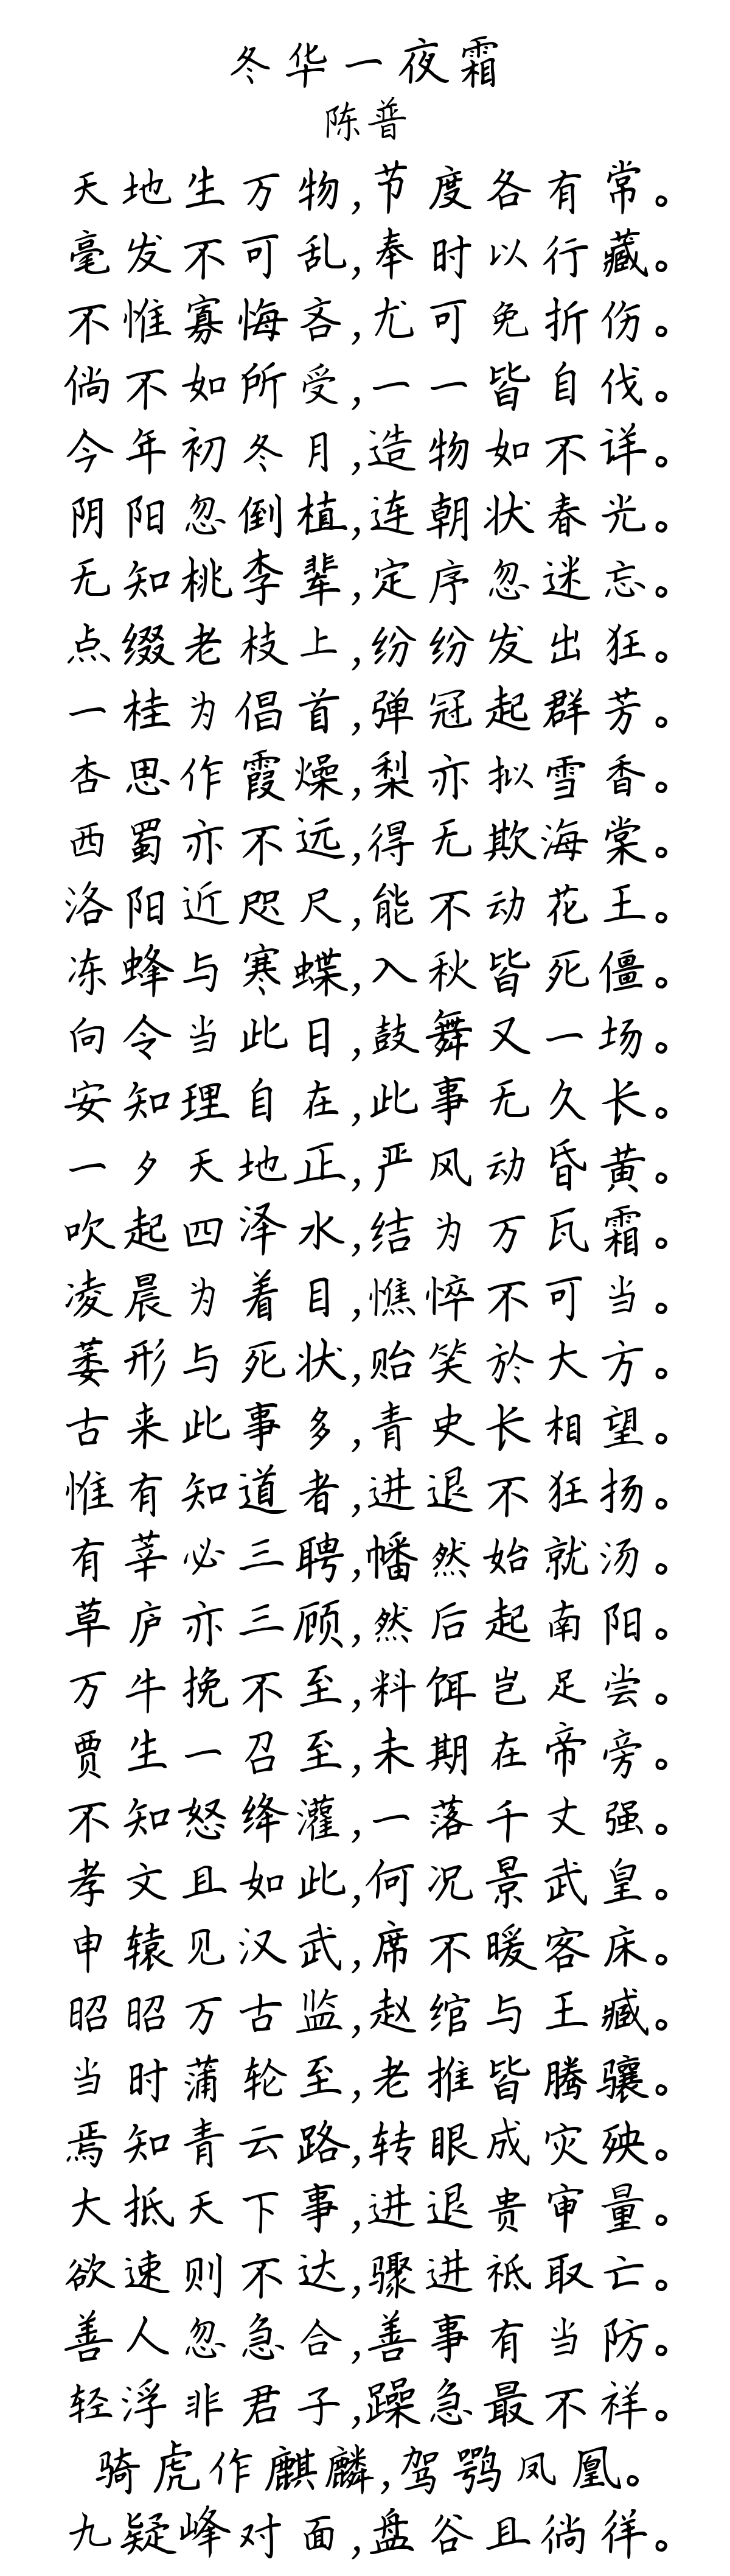 冬华一夜霜
陈普
天地生万物,节度各有常。
毫发不可乱,奉时以行藏。
不惟寡悔吝,尤可免折伤。
倘不如所受,一一皆自伐。
今年初冬月,造物如不详。
阴阳忽倒植,连朝状春光。
无知桃李辈,定序忽迷忘。
点缀老枝上,纷纷发出狂。
一桂为倡首,弹冠起群芳。
杏思作霞燥,梨亦拟雪香。
西蜀亦不远,得无欺海棠。
洛阳近咫尺,能不动花王。
冻蜂与寒蝶,入秋皆死僵。
向令当此日,鼓舞又一场。
安知理自在,此事无久长。
一夕天地正,严风动昏黄。
吹起四泽水,结为万瓦霜。
凌晨为着目,憔悴不可当。
萎形与死状,贻笑於大方。
古来此事多,青史长相望。
惟有知道者,进退不狂扬。
有莘必三聘,幡然始就汤。
草庐亦三顾,然后起南阳。
万牛挽不至,料饵岂足尝。
贾生一召至,未期在帝旁。
不知怒绛灌,一落千丈强。
孝文且如此,何况景武皇。
申辕见汉武,席不暖客床。
昭昭万古监,赵绾与王臧。
当时蒲轮至,老推皆腾骧。
焉知青云路,转眼成灾殃。
大抵天下事,进退贵审量。
欲速则不达,骤进祇取亡。
善人忽急合,善事有当防。
轻浮非君子,躁急最不祥。
骑虎作麒麟,驾鹗凤凰。
九疑峰对面,盘谷且徜徉。